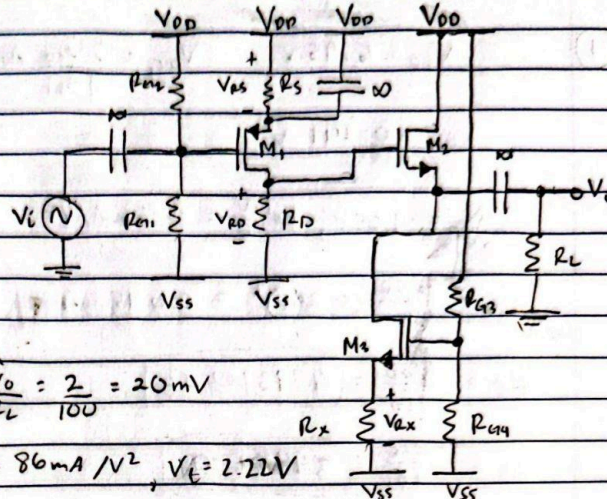 VDD VDD VDD VDD
+
RG2 VRS RS ∞
-
∞ M1 M2 ∞
+
Vi RG1 VRD RD RL
-
VSS VSS RG3
M3
= 2/100 = 20mV
+
RX VRX RG4
-
86mA/V², Vt = 2.22V
VSS VSS